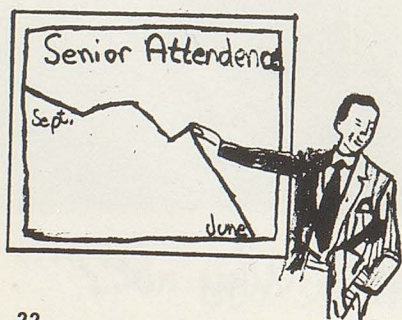 Senior Attendence
Sept.
June
22